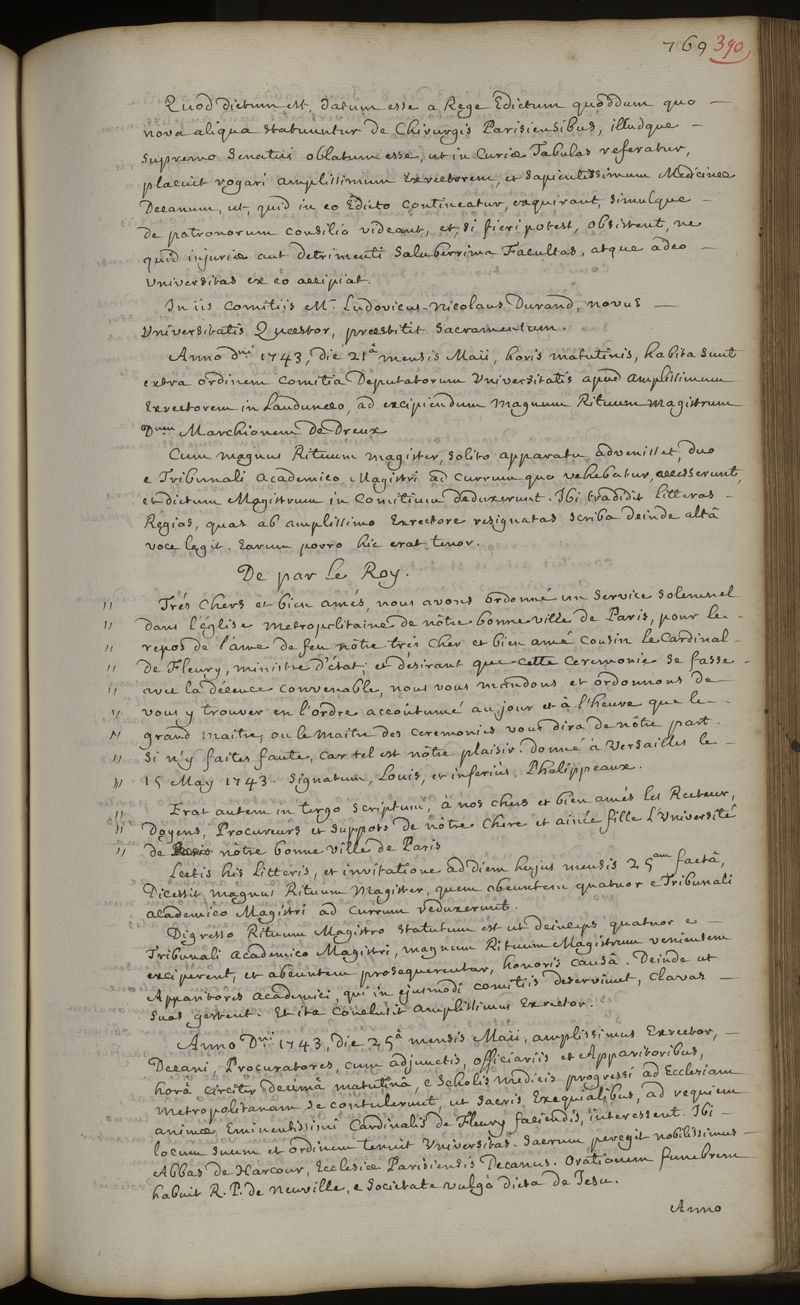 769 390
Quod dictum est, datum esse a Rege Edictum quoddam quo —
nova aliqua statuuntur de Chirurgis Parisiensibus, illudque —
Supremo Senatui oblatum esse, ut in Curiæ Tabulas referatur,
placuit rogari amplissimum Exrectorem, et Sapientissimum Medicinæ
Decanum, ut, quid in eo Edicto contineatur, exquirant, simulque —
de patronorum consilio videant, et, si fieri potest, obsistent, ne
quid injuriæ aut detrimenti Saluberrima Facultas, atque adeo —
Universitas ex eo accipiat.
In iis Comitiis Mr. Ludovicus-Nicolaus Durand, novus —
Universitatis Quæstor, præstitit Sacramentum.
Anno dni 1743, die 21â mensis Maii, horis matutinis, habita sunt
extra ordinem Comitia Deputatorum Universitatis apud amplissimum
Exrectorem in Laudunæo, ad excipiendum magnum Rituum magistrum
Dnum Marchionem de Dreux
Cum magnus Rituum magister, solito apparatu advenisset, duo
e Tribunali academico Magistri ad currum quo vehebatur, accesserunt,
et dictum Magistrum in Comitium deduxerunt. Ibi tradidit litteras —
Regias, quas ab amplissimo Exrectore resignatas Scriba deinde altâ
voce legit. Earum porro hic erat tenor.
De par Le Roy.
" Trés Chers et bien amés, nous avons ordonné un Service Solemnel
" dans l'église metropolitaine de nôtre bonne ville de Paris, pour le —
" repos de l'ame de feu nôtre trés Cher et bien amé Cousin le Cardinal —
" de Fleury, ministre d'état; et desirant que cette Ceremonie se fasse —
" avec la decence convenable, nous vous mandons et ordonnons de
" vous y trouver en l'ordre accoûtumé au jour et à l'heure que le —
" grand maitre, ou le maitre des Ceremonies vous dira de nôtre part.
" Si n'y faites faute, car tel est nôtre plaisir. donné à Versailles le —
" 15 May 1743. Signatum, Louis, et inferiùs, Phelippeaux.
" Erat autem in tergo scriptum, à nos chers et bien amés les Recteur,
" Doyens, Procureurs et Suppots de nôtre Chere et ainée fille L'Université
" de nôtre bonne ville de Paris
Lectis his litteris, et invitatione ad diem hujus mensis 25am factâ,
Dicessit magnus Rituum Magister, quem abeuntem quatuor e Tribunali
academico Magistri ad Currum reduxerunt.
Digresso Rituum Magistro statutum est ut deinceps quatuor e —
Tribunali academico Magistri, magnum Rituum Magistrum venientem
exciperent, et abeuntem prosequerentur, honoris causâ. Deinde ut
Apparitores academici, qui in ejusmodi comitiis deserviunt, clavas —
suas gererent. Et ita conclusit amplissimus Exrector.
Anno Dni 1743, die 25â mensis Maii, amplissimus Exrector, —
Decani, Procuratores, cum adjunctis, officiariis et Apparitoribus,
horâ circiter decimâ matutinâ, e Scholis medicis progressi ad Ecclesiam
metropolitanam se contulerunt, ut Sacris Exequialibus, ad requiem
animæ Eminentissimi Cardinalis de Fleury faciendis, interessent. Ibi —
locum suum et ordinem tenuit Universitas. Sacrum peregit nobilissimus —
Abbas de Harcour, Ecclesiæ Parisiensis Decanus. Orationem funebrem
habuit R. P. de Neuville, e Societate vulgò dicta de Jesu.
Anno